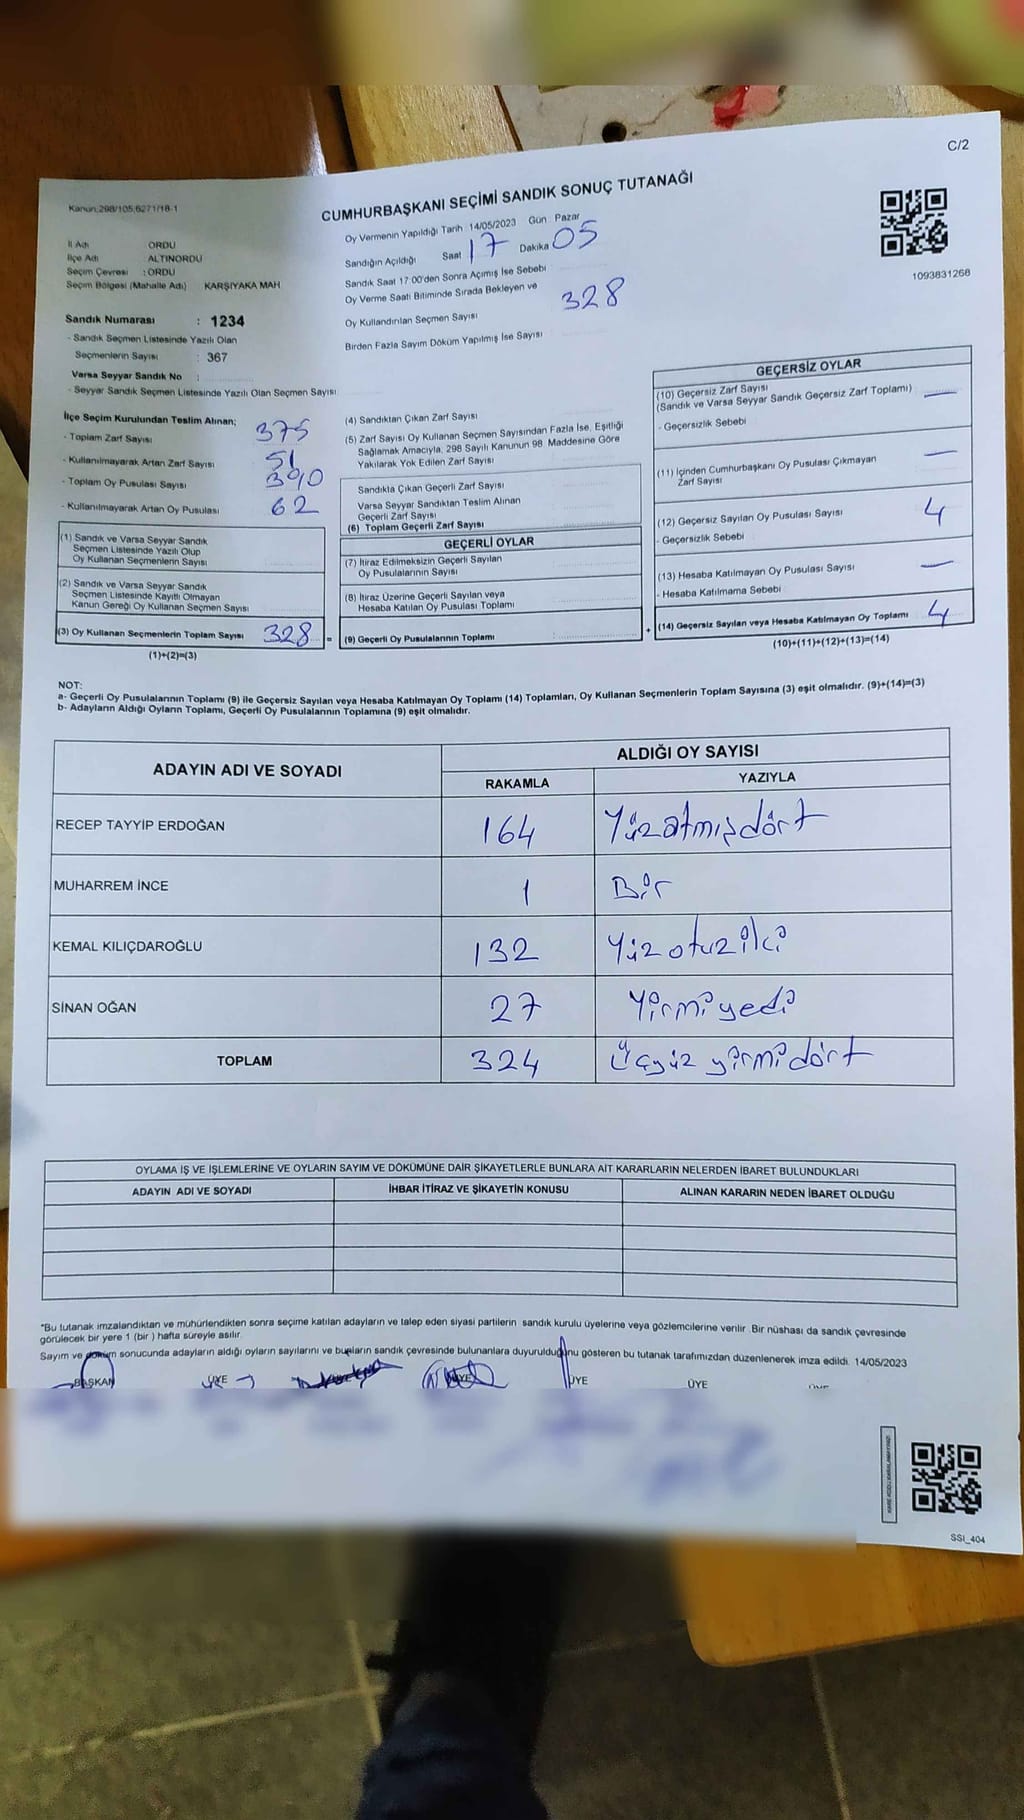 C/2
Kanun:298/105,6271/18-1
CUMHURBAŞKANI SEÇİMİ SANDIK SONUÇ TUTANAĞI
İl Adı ORDU
İlçe Adı ALTINORDU
Seçim Çevresi : ORDU
Seçim Bölgesi (Mahalle Adı) KARŞIYAKA MAH
Sandık Numarası : 1234
- Sandık Seçmen Listesinde Yazılı Olan
Seçmenlerin Sayısı : 367
Varsa Seyyar Sandık No :
- Seyyar Sandık Seçmen Listesinde Yazılı Olan Seçmen Sayısı
Oy Vermenin Yapıldığı Tarih 14/05/2023 Gün Pazar
Sandığın Açıldığı Saat 17 Dakika 05
Sandık Saat 17:00'den Sonra Açımış İse Sebebi
Oy Verme Saati Bitiminde Sırada Bekleyen ve
Oy Kullandırılan Seçmen Sayısı 328
Birden Fazla Sayım Döküm Yapılmış İse Sayısı
1093831268
İlçe Seçim Kurulundan Teslim Alınan;
- Toplam Zarf Sayısı 375
- Kullanılmayarak Artan Zarf Sayısı 51
- Toplam Oy Pusulası Sayısı 390
- Kullanılmayarak Artan Oy Pusulası 62
(1) Sandık ve Varsa Seyyar Sandık
Seçmen Listesinde Yazılı Olup
Oy Kullanan Seçmenlerin Sayısı
(2) Sandık ve Varsa Seyyar Sandık
Seçmen Listesinde Kayıtlı Olmayan
Kanun Gereği Oy Kullanan Seçmen Sayısı
(3) Oy Kullanan Seçmenlerin Toplam Sayısı 328 =
(1)+(2)=(3)
(4) Sandıktan Çıkan Zarf Sayısı
(5) Zarf Sayısı Oy Kullanan Seçmen Sayısından Fazla İse, Eşitliği
Sağlamak Amacıyla, 298 Sayılı Kanunun 98. Maddesine Göre
Yakılarak Yok Edilen Zarf Sayısı
Sandıkta Çıkan Geçerli Zarf Sayısı
Varsa Seyyar Sandıktan Teslim Alınan
Geçerli Zarf Sayısı
(6) Toplam Geçerli Zarf Sayısı
GEÇERLİ OYLAR
(7) İtiraz Edilmeksizin Geçerli Sayılan
Oy Pusulalarının Sayısı
(8) İtiraz Üzerine Geçerli Sayılan veya
Hesaba Katılan Oy Pusulası Toplamı
(9) Geçerli Oy Pusulalarının Toplamı +
GEÇERSİZ OYLAR
(10) Geçersiz Zarf Sayısı
(Sandık ve Varsa Seyyar Sandık Geçersiz Zarf Toplamı) —
- Geçersizlik Sebebi
(11) İçinden Cumhurbaşkanı Oy Pusulası Çıkmayan
Zarf Sayısı —
(12) Geçersiz Sayılan Oy Pusulası Sayısı 4
- Geçersizlik Sebebi
(13) Hesaba Katılmayan Oy Pusulası Sayısı —
- Hesaba Katılmama Sebebi
(14) Geçersiz Sayılan veya Hesaba Katılmayan Oy Toplamı 4
(10)+(11)+(12)+(13)=(14)
NOT:
a- Geçerli Oy Pusulalarının Toplamı (9) ile Geçersiz Sayılan veya Hesaba Katılmayan Oy Toplamı (14) Toplamları, Oy Kullanan Seçmenlerin Toplam Sayısına (3) eşit olmalıdır. (9)+(14)=(3)
b- Adayların Aldığı Oyların Toplamı, Geçerli Oy Pusulalarının Toplamına (9) eşit olmalıdır.
ADAYIN ADI VE SOYADI ALDIĞI OY SAYISI
RAKAMLA YAZIYLA
RECEP TAYYİP ERDOĞAN 164 Yüzatmışdört
MUHARREM İNCE 1 Bir
KEMAL KILIÇDAROĞLU 132 Yüzotuziki
SİNAN OĞAN 27 Yirmiyedi
TOPLAM 324 Üçyüz yirmidört
OYLAMA İŞ VE İŞLEMLERİNE VE OYLARIN SAYIM VE DÖKÜMÜNE DAİR ŞİKAYETLERLE BUNLARA AİT KARARLARIN NELERDEN İBARET BULUNDUKLARI
ADAYIN ADI VE SOYADI İHBAR İTİRAZ VE ŞİKAYETİN KONUSU ALINAN KARARIN NEDEN İBARET OLDUĞU
*Bu tutanak imzalandıktan ve mühürlendikten sonra seçime katılan adayların ve talep eden siyasi partilerin sandık kurulu üyelerine veya gözlemcilerine verilir. Bir nüshası da sandık çevresinde
görülecek bir yere 1 (bir ) hafta süreyle asılır.
Sayım ve döküm sonucunda adayların aldığı oyların sayılarını ve bunların sandık çevresinde bulunanlara duyurulduğunu gösteren bu tutanak tarafımızdan düzenlenerek imza edildi. 14/05/2023
BAŞKAN ÜYE ÜYE ÜYE ÜYE
SSI_404